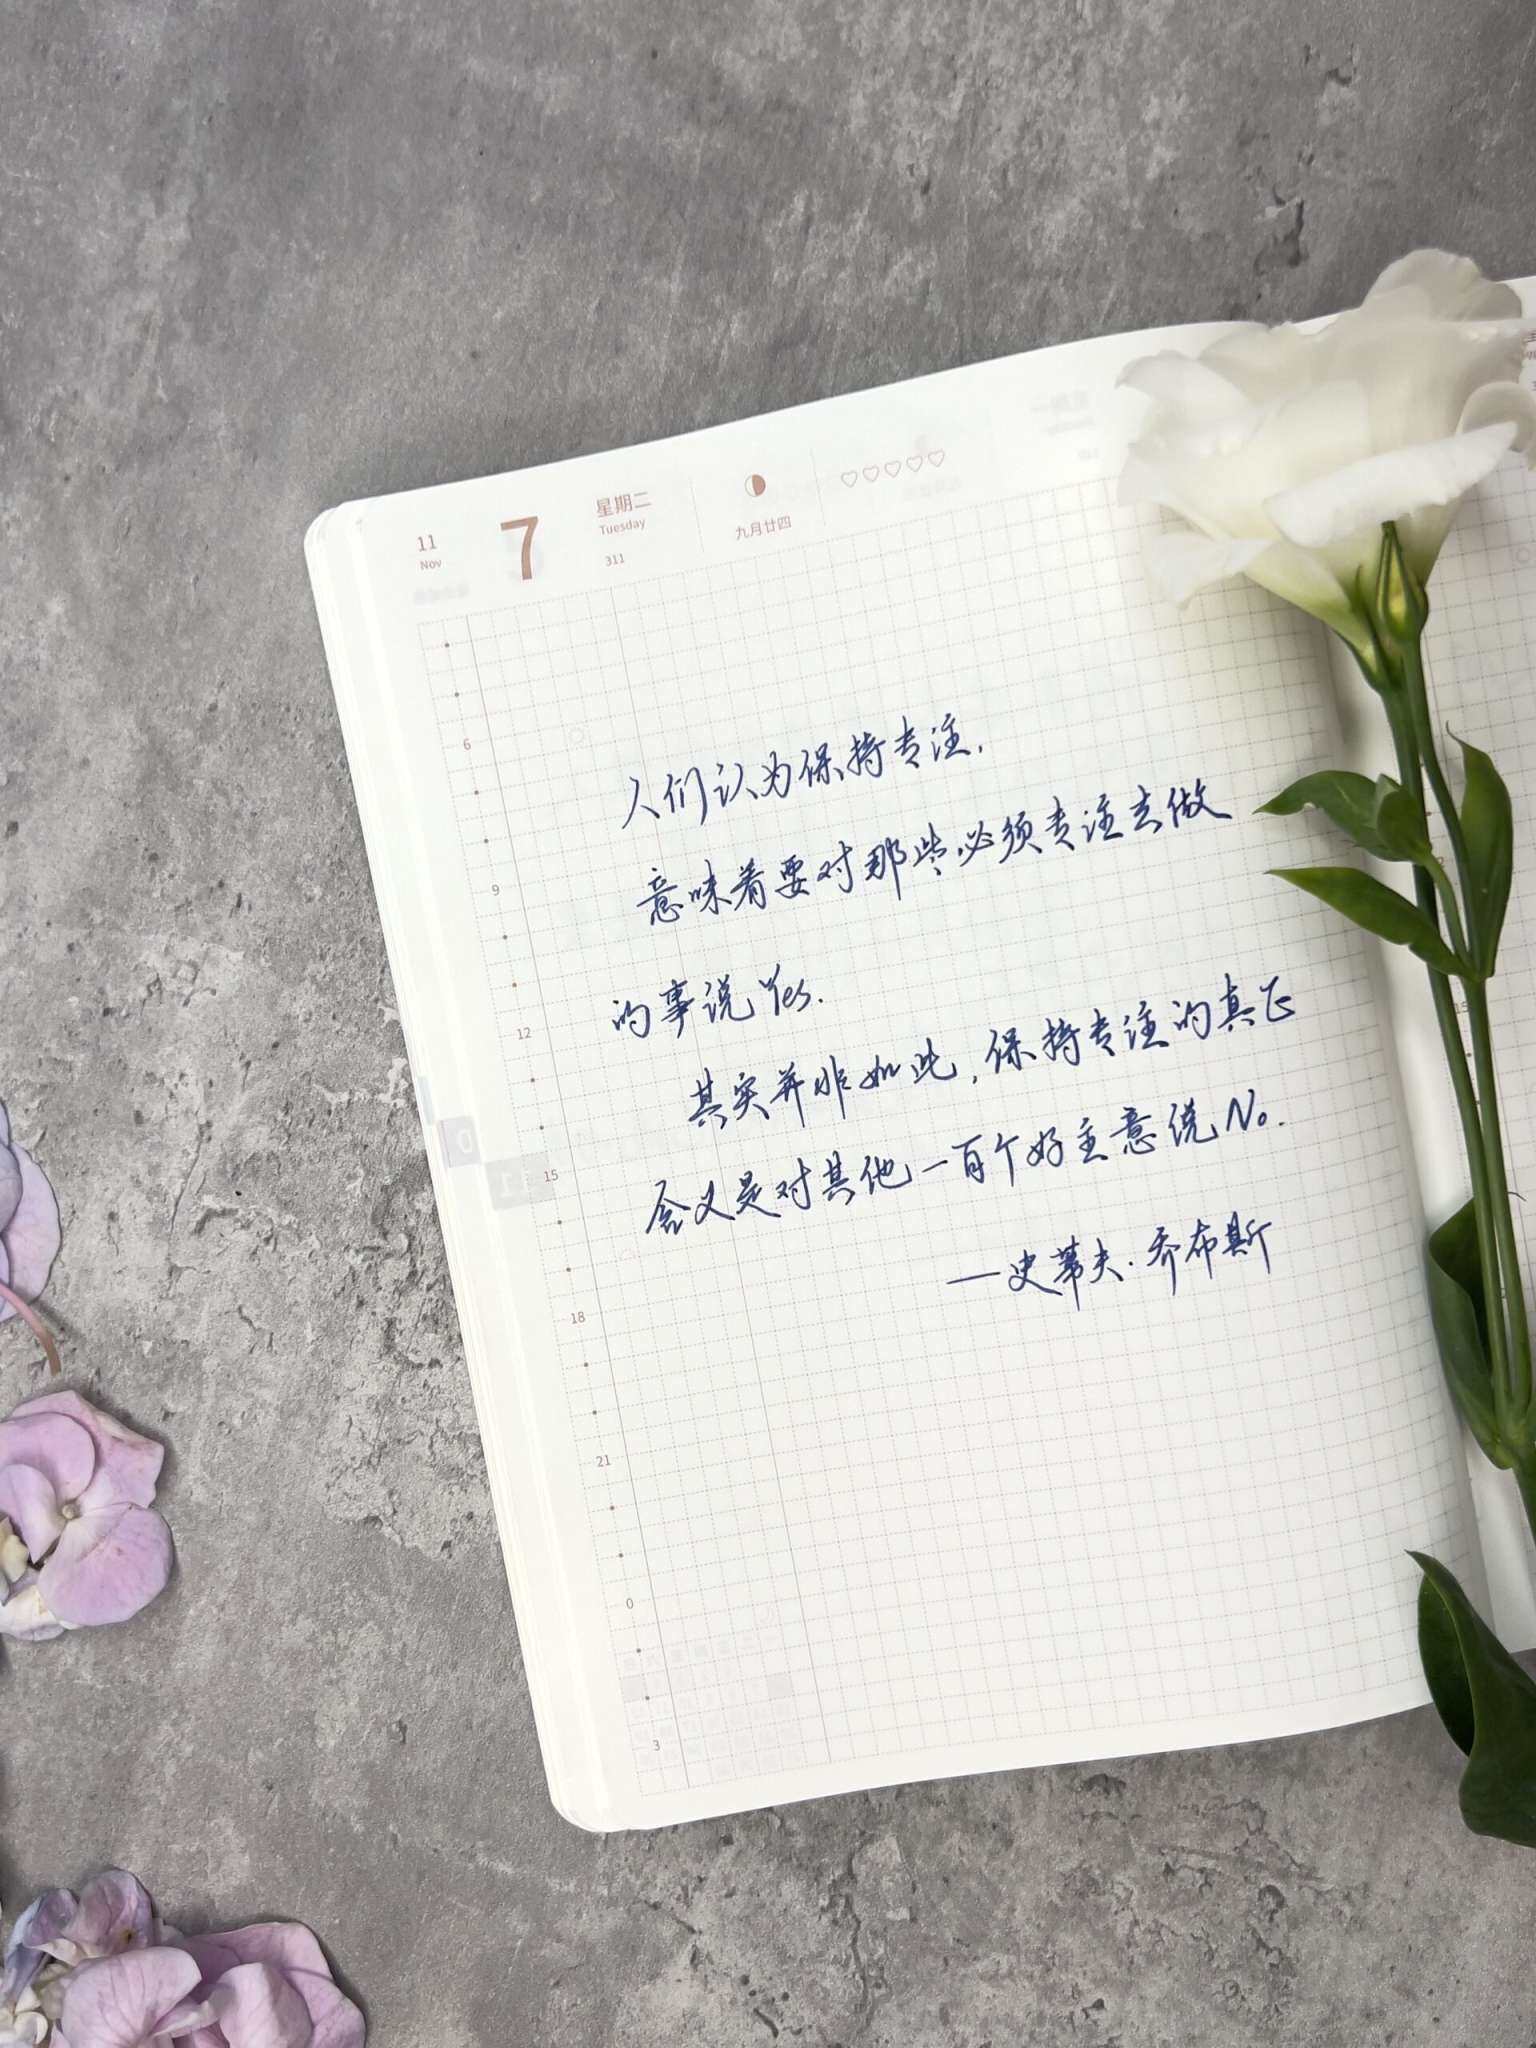 11
Nov
7
星期二
Tuesday
311
九月廿四
6
9
12
15
18
21
0
3
人们认为保持专注，
意味着要对那些必须专注去做
的事说 Yes.
其实并非如此，保持专注的真正
含义是对其他一百个好主意说 No.
—史蒂夫·乔布斯